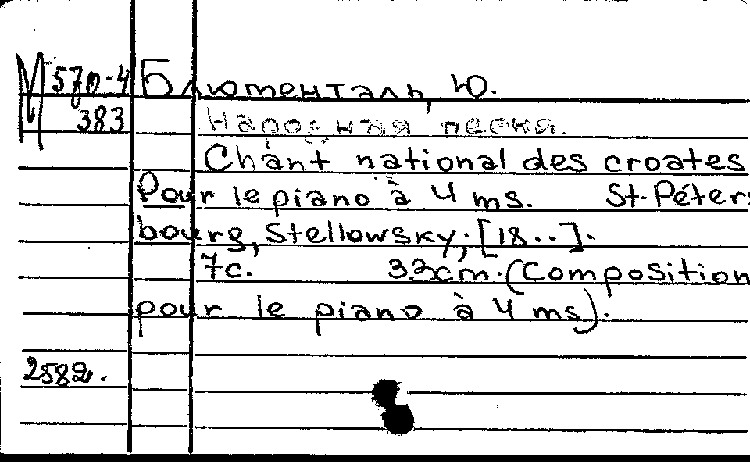 М 570-4 Блюменталь, Ю.
383 Народная песня.
Chant national des croates
Pour le piano à 4 ms. St-Péters
bourg, Stellowsky; [18..].
7с. 33cm. (Composition
pour le piano à 4 ms).
2582.